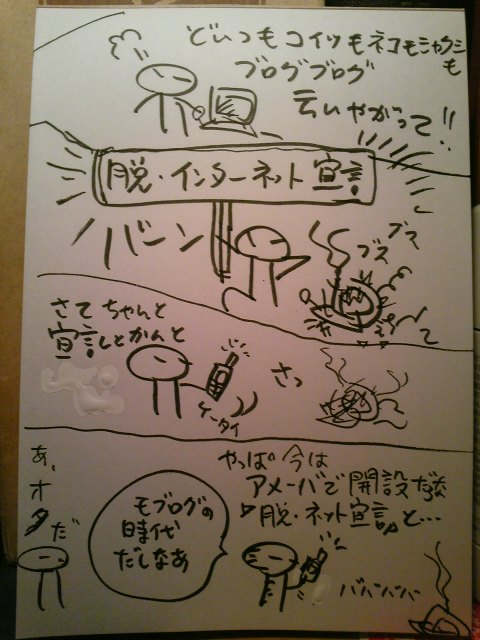 どいつもコイツもネコもシャクシも
ブログブログ
云いやがって!!
脱・インターネット宣言
バーン
ブスブス
さてちゃんと
宣言しとかんと
さっ
ケータイ
あ、オタだ
モブログの
時代
だしなあ
やっぱ今は
アメーバで開設だな
「脱・ネット宣言」と…
ババババ